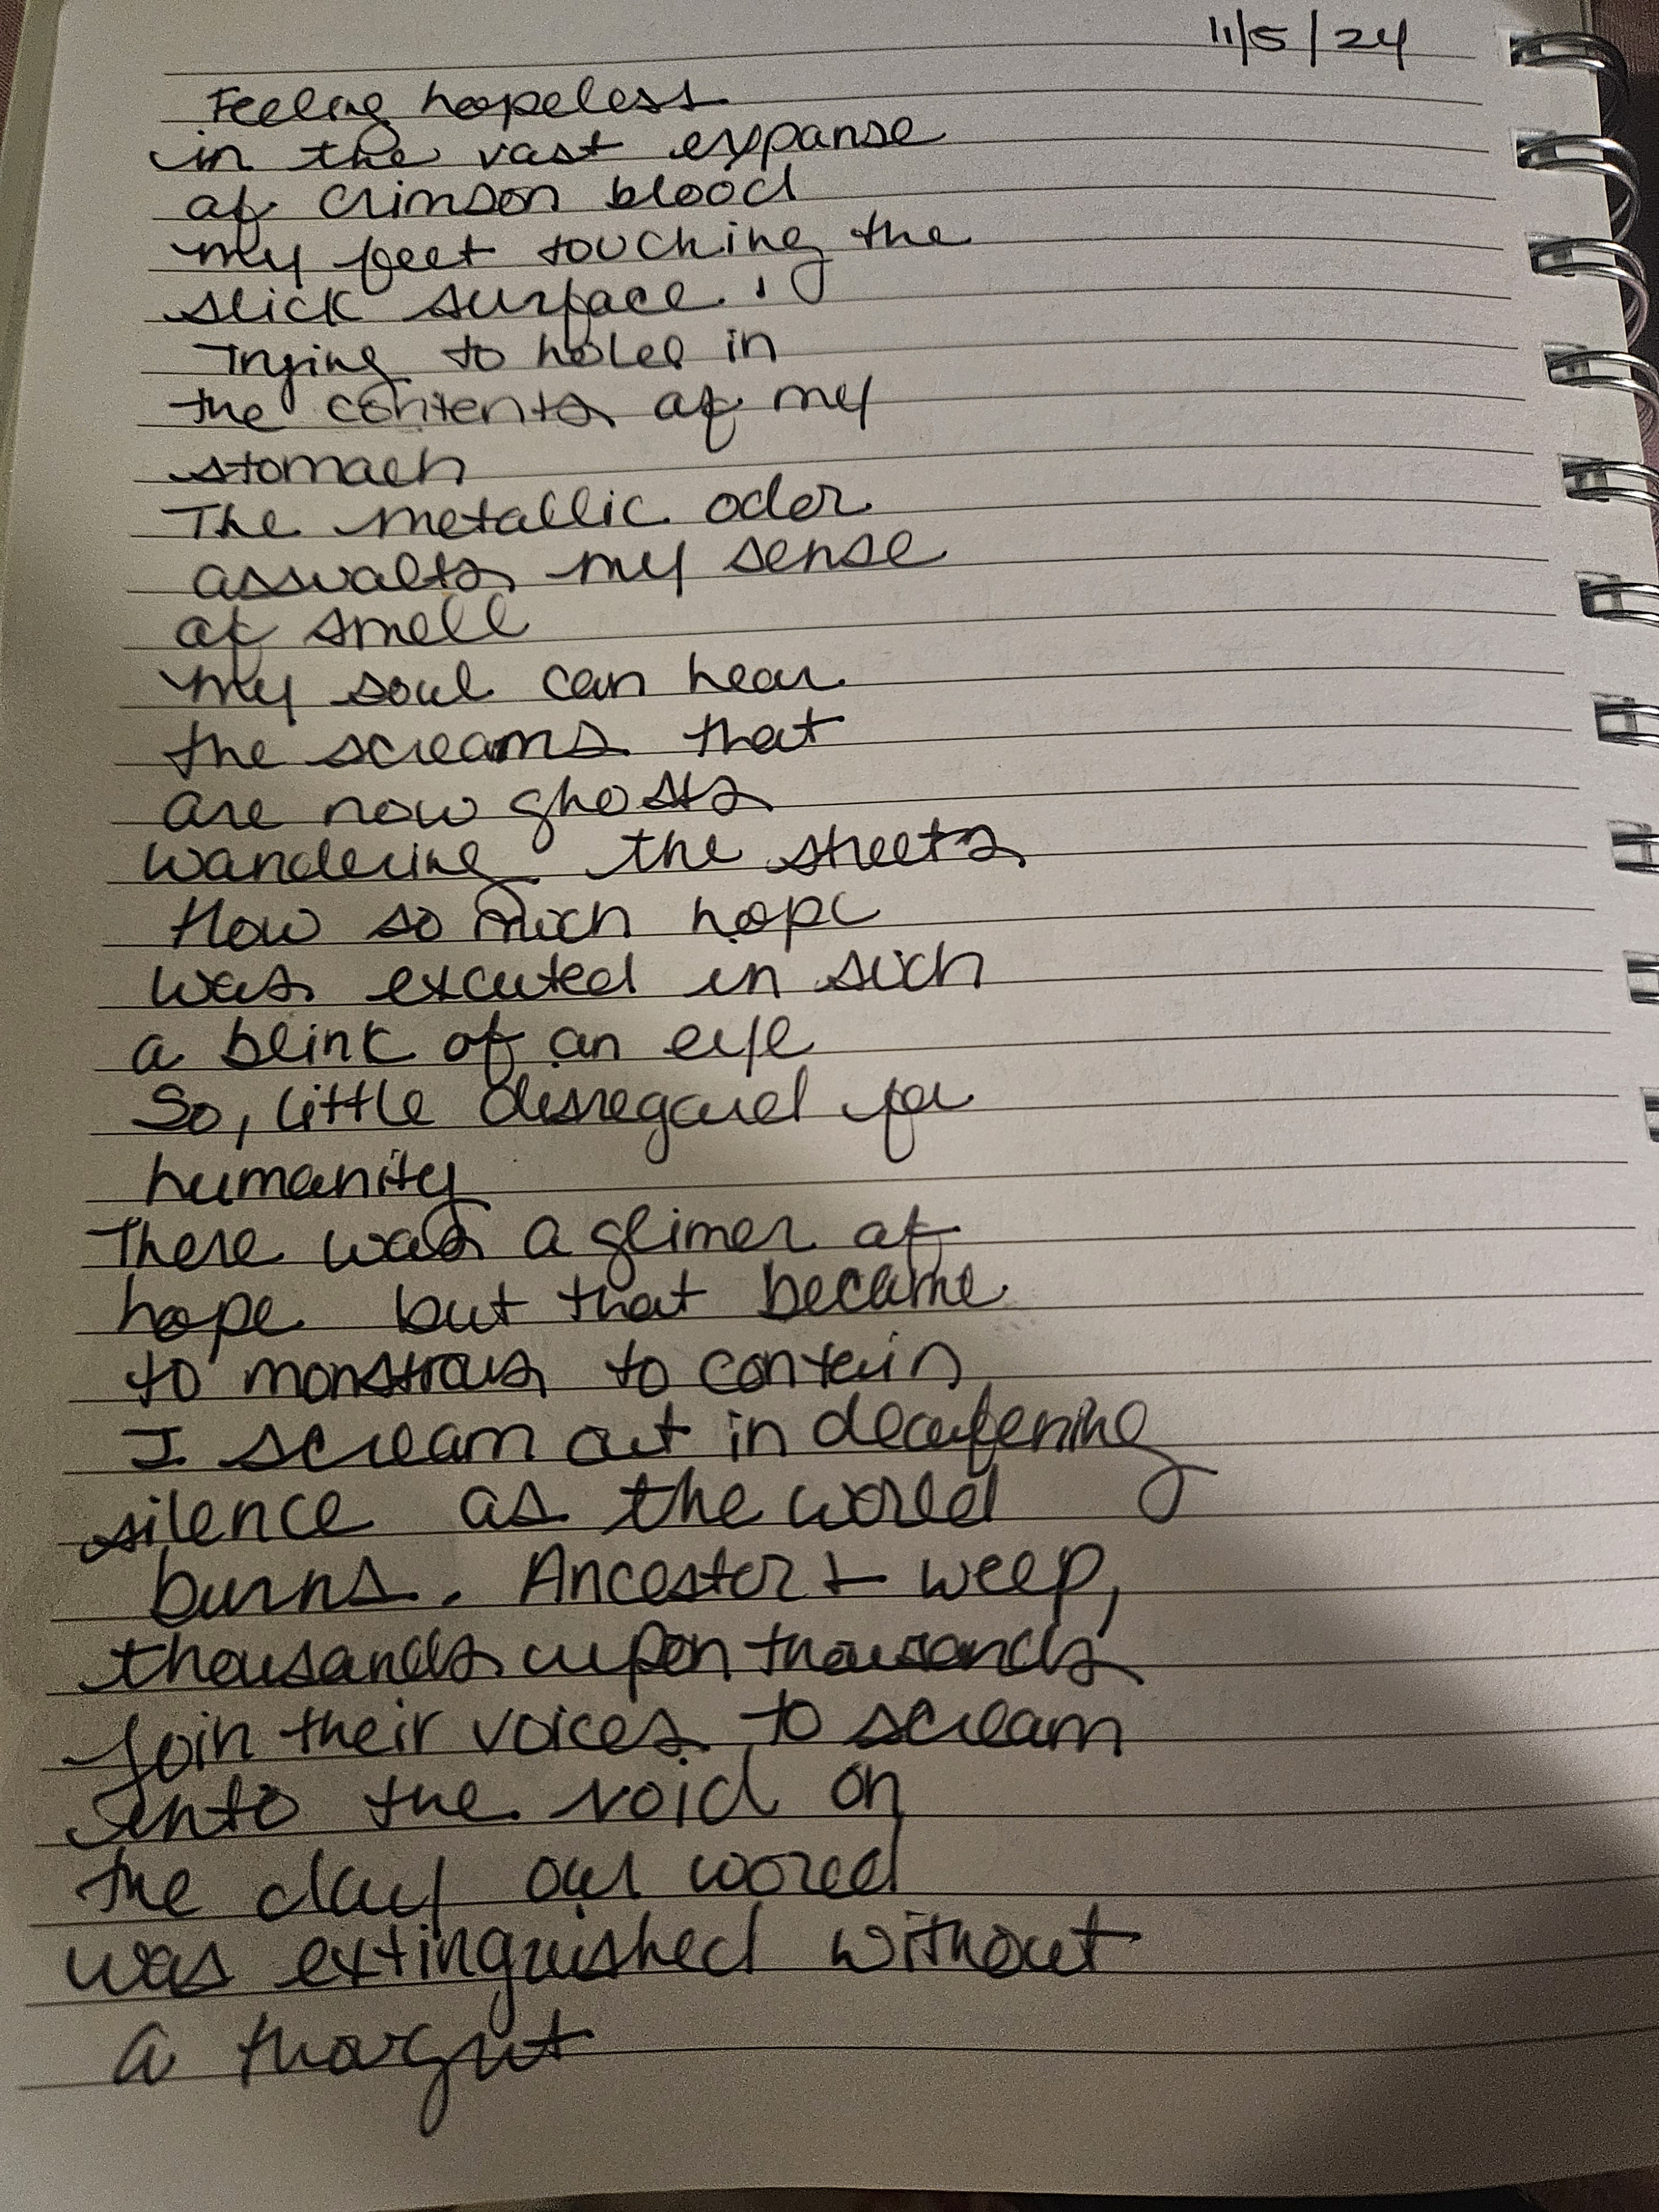 11/5/24
Feeling hopeless
in the vast expanse
of crimson blood
my feet touching the
slick surface.
Trying to hold in
the contents of my
stomach
The metallic odor
assualts my sense
of smell
my soul can hear
the screams that
are now ghosts
wandering the streets
How so much hope
was excuted in such
a blink of an eye
So, little disregard for
humanity
There was a glimer of
hope but that became
to monstrous to contain
I scream out in deafening
silence as the world
burns. Ancestors weep,
thousands upon thousands
Join their voices to scream
into the void on
the day our world
was extinguished without
a thought